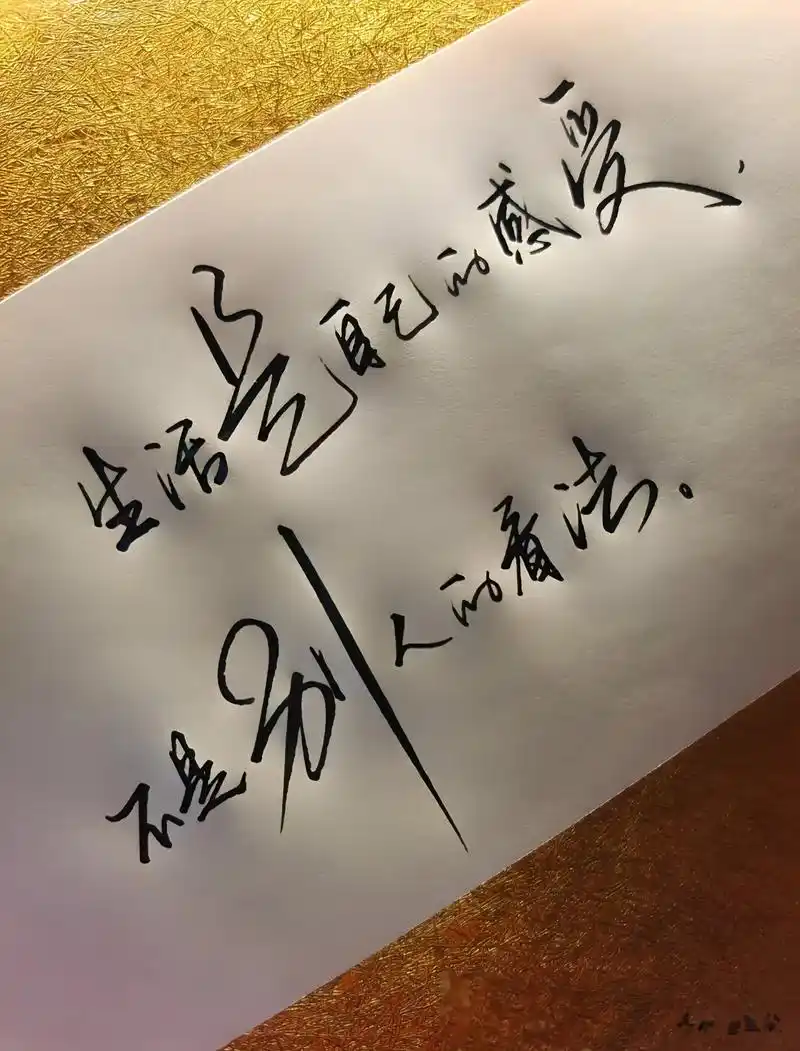 生活是自己的感受，
不是别人的看法。